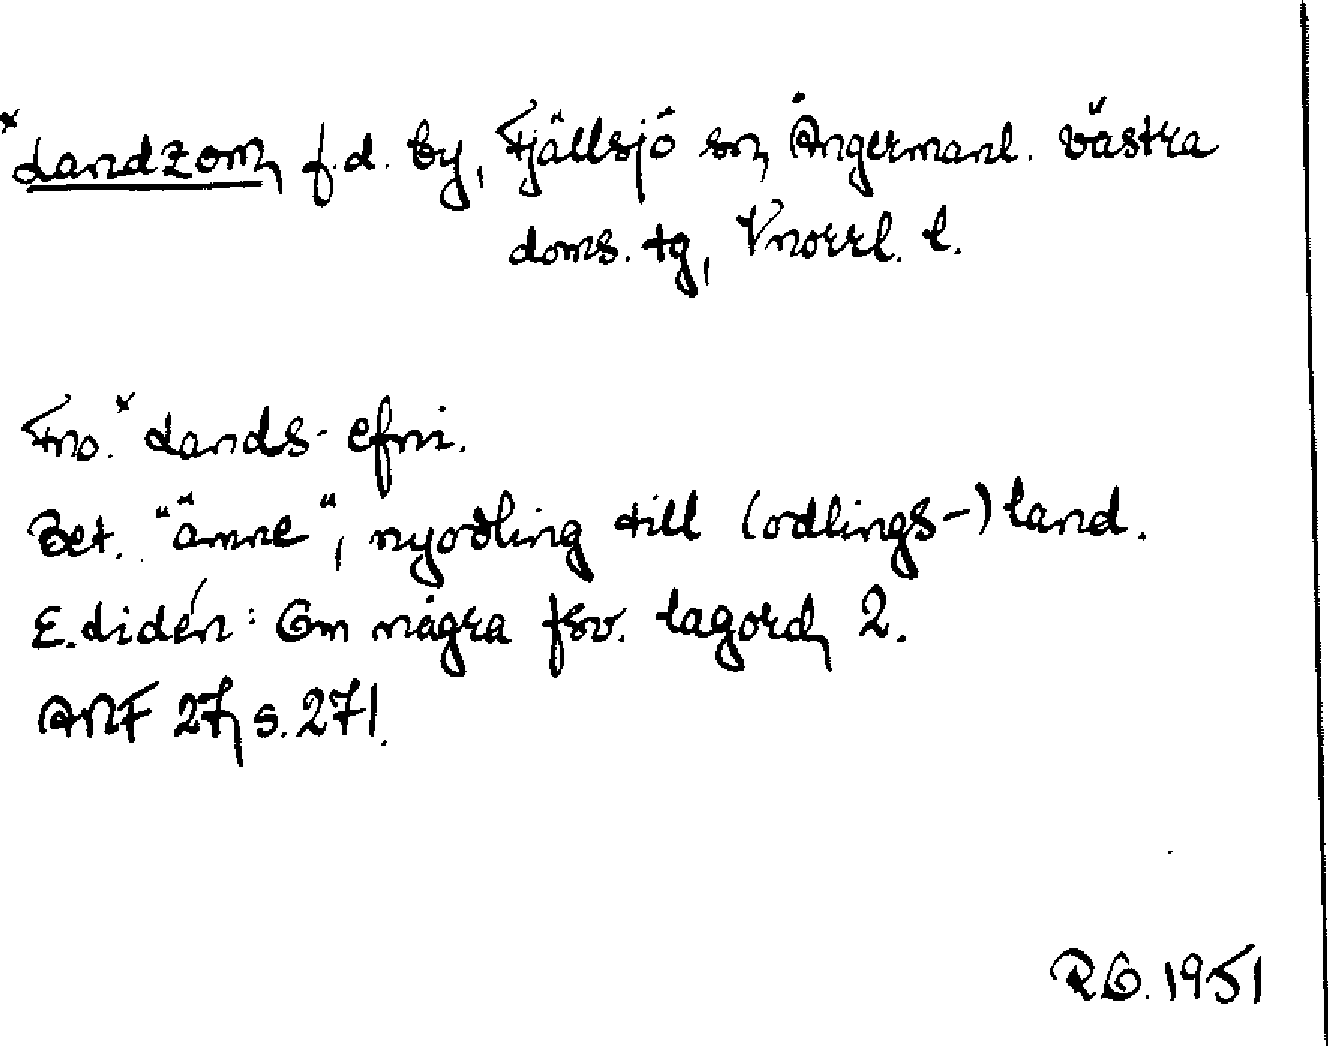 *Landzom, f.d. by, Fjällsjö sn, Ångermanl. västra
doms. tg, Vnorrl. l.
Fno. *Lands-efni.
Bet. "ämne", nyodling till (odlings-) land.
E. Lidén: Om några fsv. lagord, 2.
ANF 27, s. 271.
R.O. 1951